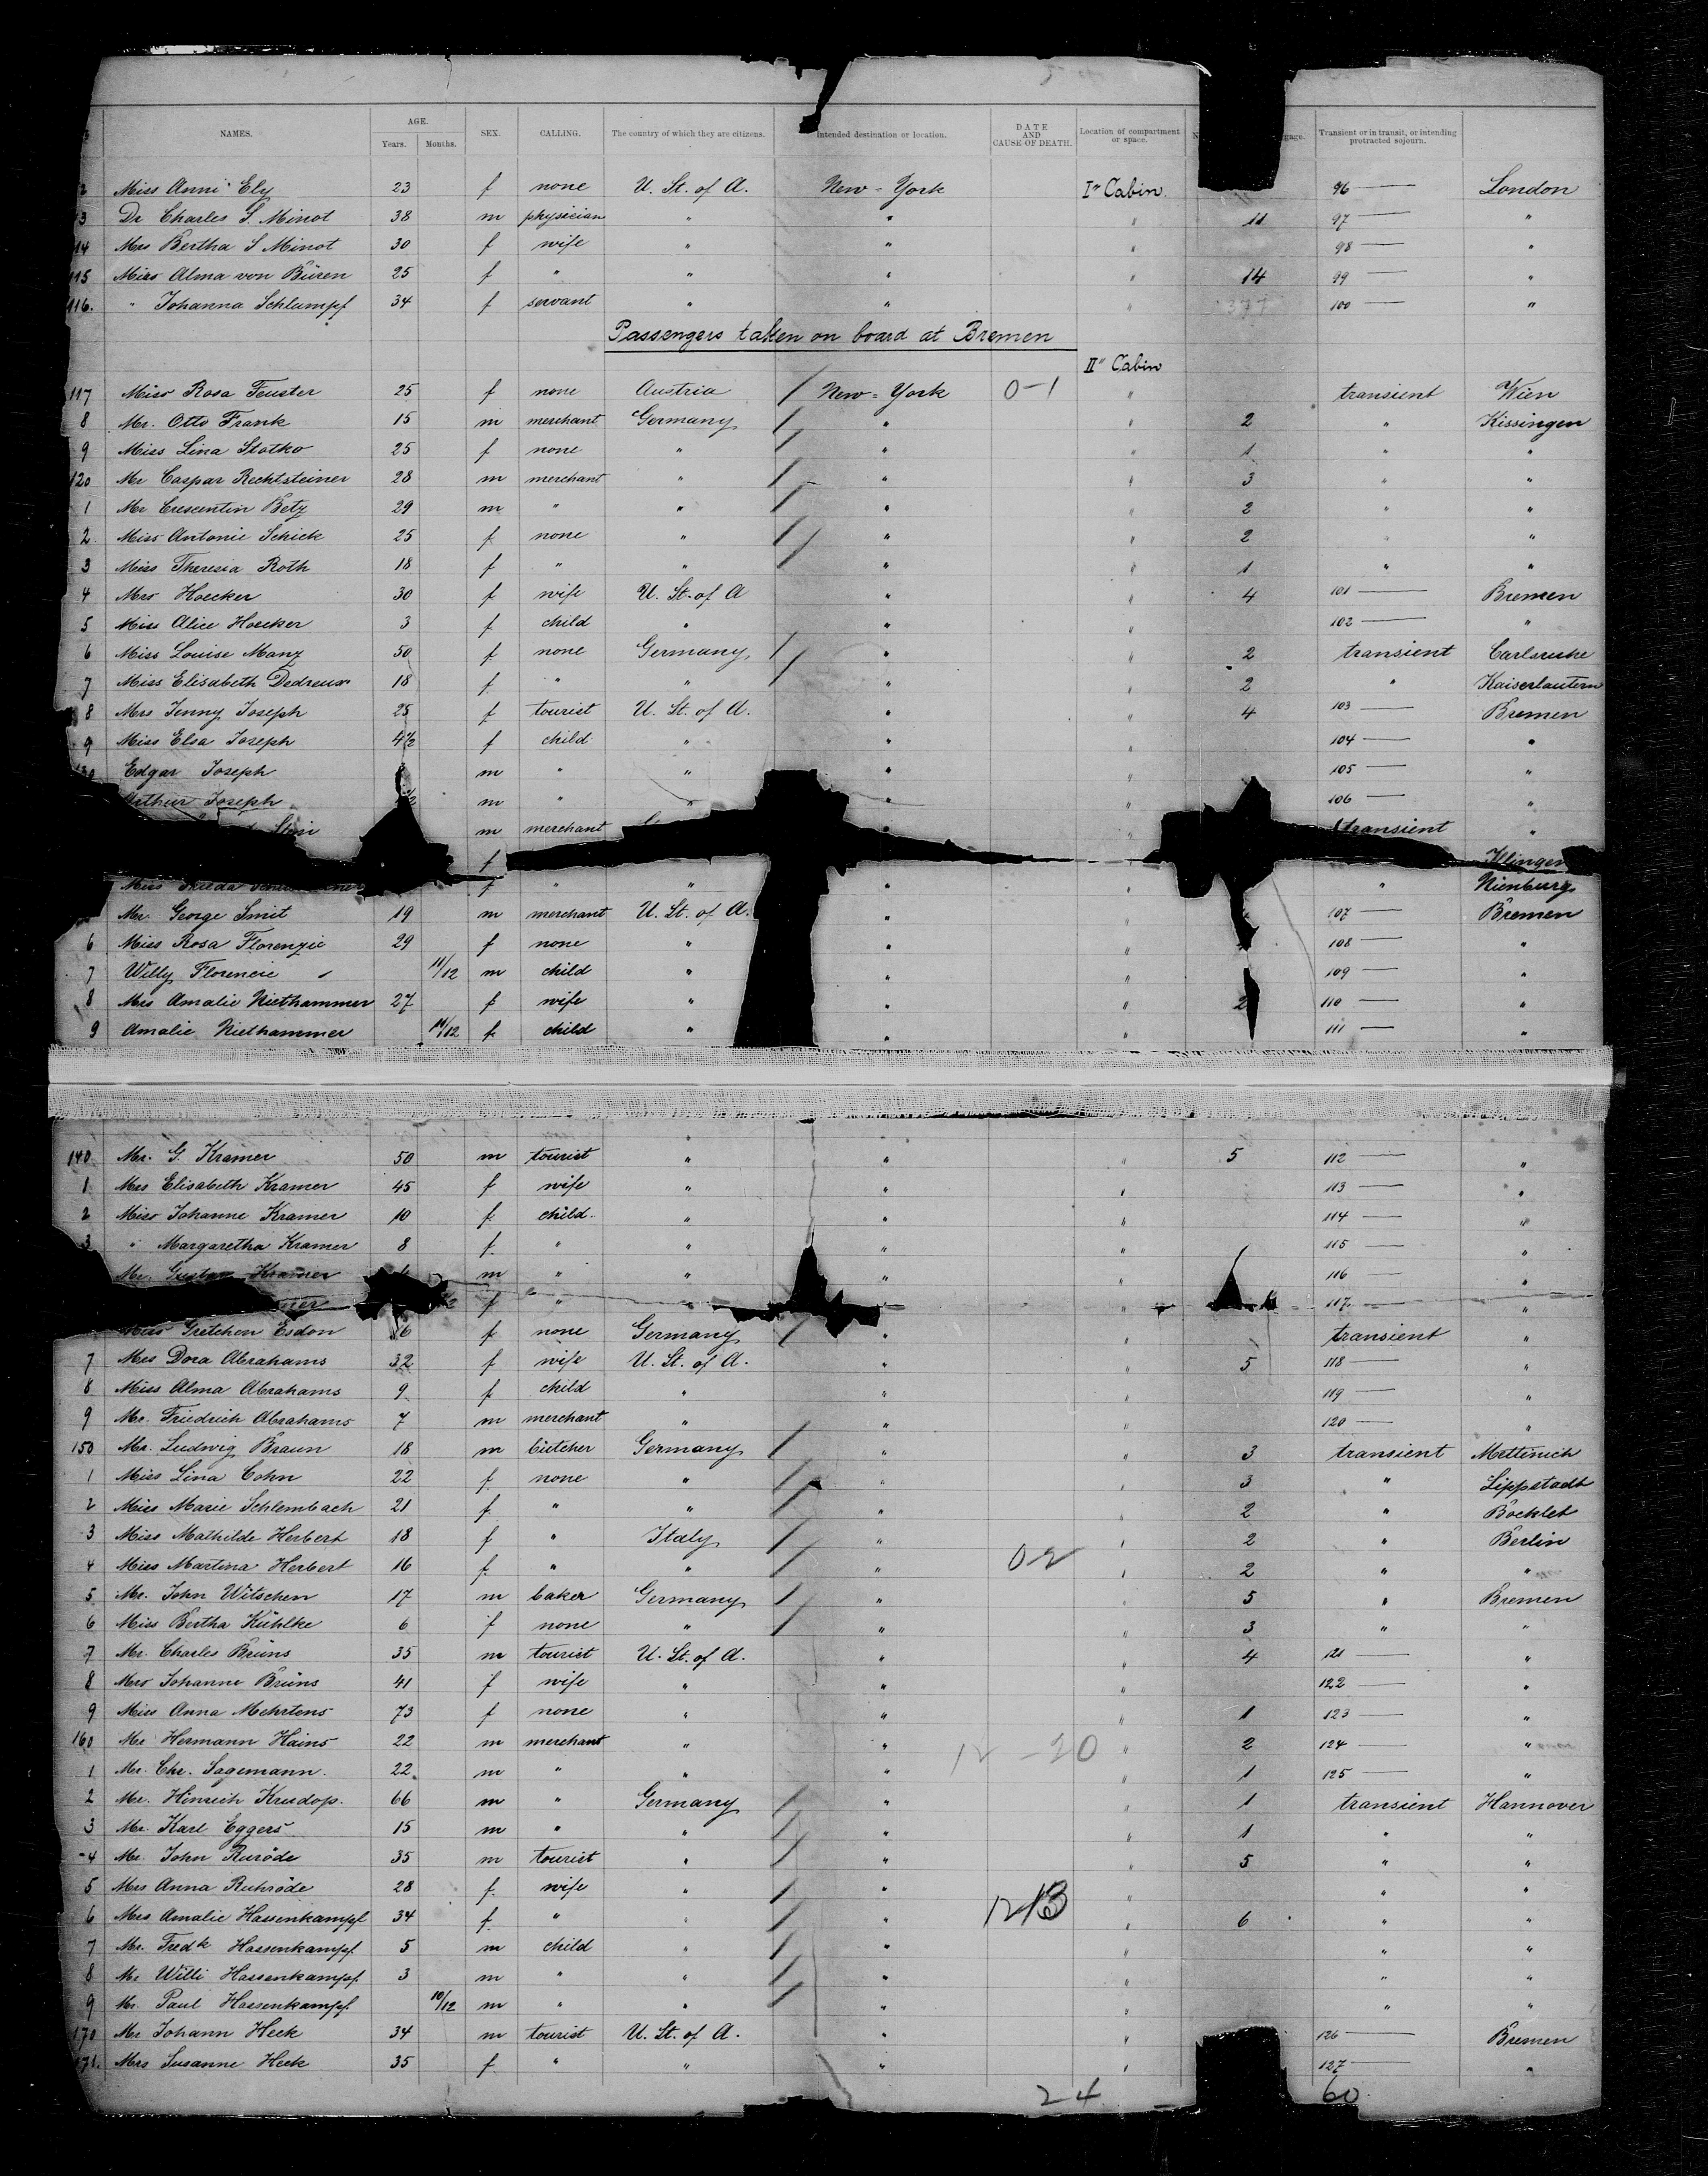 NAMES. AGE. Years. Months. SEX. CALLING. The country of which they are citizens. Intended destination or location. DATE AND CAUSE OF DEATH. Location of compartment or space. Transient or in transit, or intending protracted sojourn.
2 Miss Anni Ely 23 f none U. St. of A. New-York I" Cabin. 96 — London
3 Dr Charles S. Minot 38 m physician " " " 11 97 — "
14 Mrs Bertha S Minot 30 f wife " " " 98 — "
115 Miss Alma von Büren 25 f " " " " 14 99 — "
116. " Johanna Schlumpf 34 f servant " " " 377 100 — "
Passengers taken on board at Bremen
II" Cabin
117 Miss Rosa Fenster 25 f none Austria / New-York 0-1 " transient Wien
8 Mr. Otto Frank 15 m merchant Germany / " " 2 " Kissingen
9 Miss Lina Statko 25 f none " / " " 1 " "
120 Mr Caspar Rechtsteiner 28 m merchant " / " " 3 " "
1 Mr Crescentin Betz 29 m " " / " " 2 " "
2 Miss Antonie Schick 25 f none " / " " 2 " "
3 Miss Theresia Roth 18 f " " / " " 1 " "
4 Mrs Hoecker 30 f wife U. St. of A " " 4 101 — Bremen
5 Miss Alice Hoecker 3 f child " " " 102 — "
6 Miss Louise Manz 50 f none Germany / " " 2 transient Carlsruhe
7 Miss Elisabeth Dedreux 18 f " " / " " 2 " Kaiserlautern
8 Mrs Jenny Joseph 25 f tourist U. St. of A. " " 4 103 — Bremen
9 Miss Elsa Joseph 4½ f child " " " 104 — "
Edgar Joseph m " " " " 105 — "
Arthur Joseph m " " " " 106 — "
m merchant " " transient "
f Illingen
Miss f " " " " " Nienburg
Mr. George Smit 19 m merchant U. St. of A. " " 107 — Bremen
6 Miss Rosa Florenzie 29 f none " " " 108 — "
7 Willy Florencie 11/12 m child " " " 109 — "
8 Mrs Amalie Niethammer 27 f wife " " " 2 110 — "
9 Amalie Niethammer 11/12 f child " " " 111 — "
140 Mr. G. Kramer 50 m tourist " " " 5 112 — "
1 Mrs Elisabeth Kramer 45 f wife " " " 113 — "
2 Miss Johanne Kramer 10 f child " " " 114 — "
3 " Margaretha Kramer 8 f " " " " 115 — "
Mr. Gustav Kramer m " " " " 116 — "
f " " 117 — "
Miss Gretchen Esdon 16 f none Germany / " " transient "
7 Mrs Dora Abrahams 32 f wife U. St. of A. " " 5 118 — "
8 Miss Alma Abrahams 9 f child " " " 119 — "
9 Mr. Friedrich Abrahams 7 m merchant " " " 120 — "
150 Mr. Ludwig Braun 18 m butcher Germany / " " 3 transient Mettinich
1 Miss Lina Cohn 22 f none " / " " 3 " Lippstadt
2 Miss Marie Schlembach 21 f " " / " " 2 " Bocklet
3 Miss Mathilde Herbert 18 f " Italy / " " 2 " Berlin
4 Miss Martina Herbert 16 f " " / " 0-2 " 2 " "
5 Mr. John Witschen 17 m baker Germany / " " 5 " Bremen
6 Miss Bertha Kühlke 6 f none " / " " 3 " "
7 Mr. Charles Brüns 35 m tourist U. St. of A. " " 4 121 — "
8 Mrs Johanne Brüns 41 f wife " " " 122 — "
9 Miss Anna Mehrtens 73 f none " " " 1 123 — "
160 Mr Hermann Hains 22 m merchant " " 12-20 " 2 124 — "
1 Mr. Chr. Sagemann. 22 m " " " " 1 125 — "
2 Mr. Hinrich Krudop. 66 m " Germany / " " 1 transient Hannover
3 Mr. Karl Eggers 15 m " " / " " 1 " "
4 Mr. John Ruröde 35 m tourist " / " " 5 " "
5 Mrs Anna Ruhröde 28 f wife " / " " " "
6 Mrs Amalie Hassenkampf 34 f " " / " 12-13 " 6 " "
7 Mr. Fredk Hassenkampf 5 m child " / " " " "
8 Mr Willi Hassenkampf 3 m " " / " " " "
9 Mr. Paul Hassenkampf 10/12 m " " / " " " "
170 Mr Johann Heck 34 m tourist U. St. of A. " " 126 — Bremen
171. Mrs Susanne Heck 35 f " " " " 127 — "
24 60